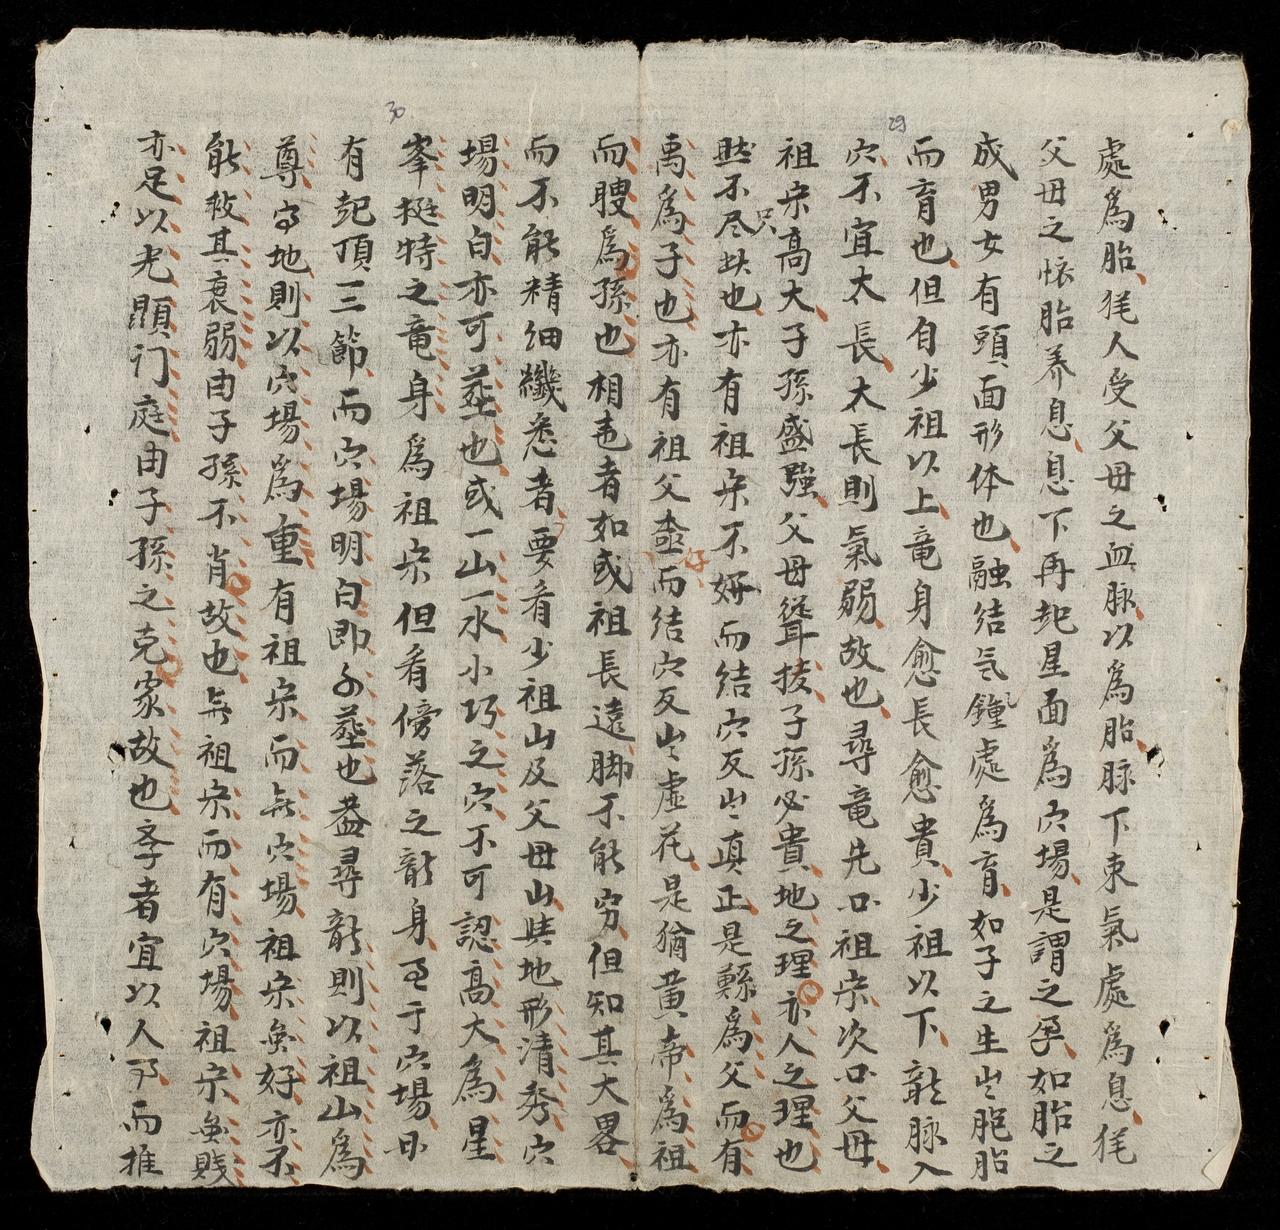 29
處爲胎猶人受父母之血脉以爲胎脉下束氣處爲息猶
父母之懷胎养息息下再起星面爲穴場是謂之孕如胎之
成男女有頭面形体也融结气鐘處爲育如子之生出胞胎
而育也但自少祖以上竜身愈長愈貴少祖以下龍脉入
穴不宜太長太長則氣弱故也尋竜先必祖宗次必父母
祖宗高大子孫盛强父母聳拔子孫必貴地之理亦人之理也
然不尽此也只亦有祖宗不好而结穴反出真正是鯀爲父而有
禹爲子也亦有祖父好而结穴反出虚花是猶黄帝爲祖
而瞍爲孫也相地者如或祖長遠脚不能穷但知其大畧
30
而不能精细纖悉者要看少祖山及父母山與地形清秀穴
場明白亦可葬也或一山一水小巧之穴不可認高大爲星
峯挺特之竜身爲祖宗但看傍落之龍身至于穴場毋
有起頂三節而穴場明白即可葬也葢尋龍則以祖山爲
尊安地則以穴場爲重有祖宗而無穴場祖宗雖好亦不
能救其衰弱由子孫不肖故也無祖宗而有穴場祖宗雖賤
亦足以光顯门庭由子孫之克家故也學者宜以人事而推